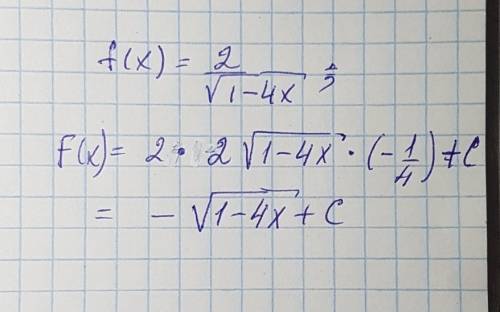 f(x) = 2/√(1-4x) ;
F(x) = 2 · 2√(1-4x) · (-1/4) + C
= - √(1-4x) + C